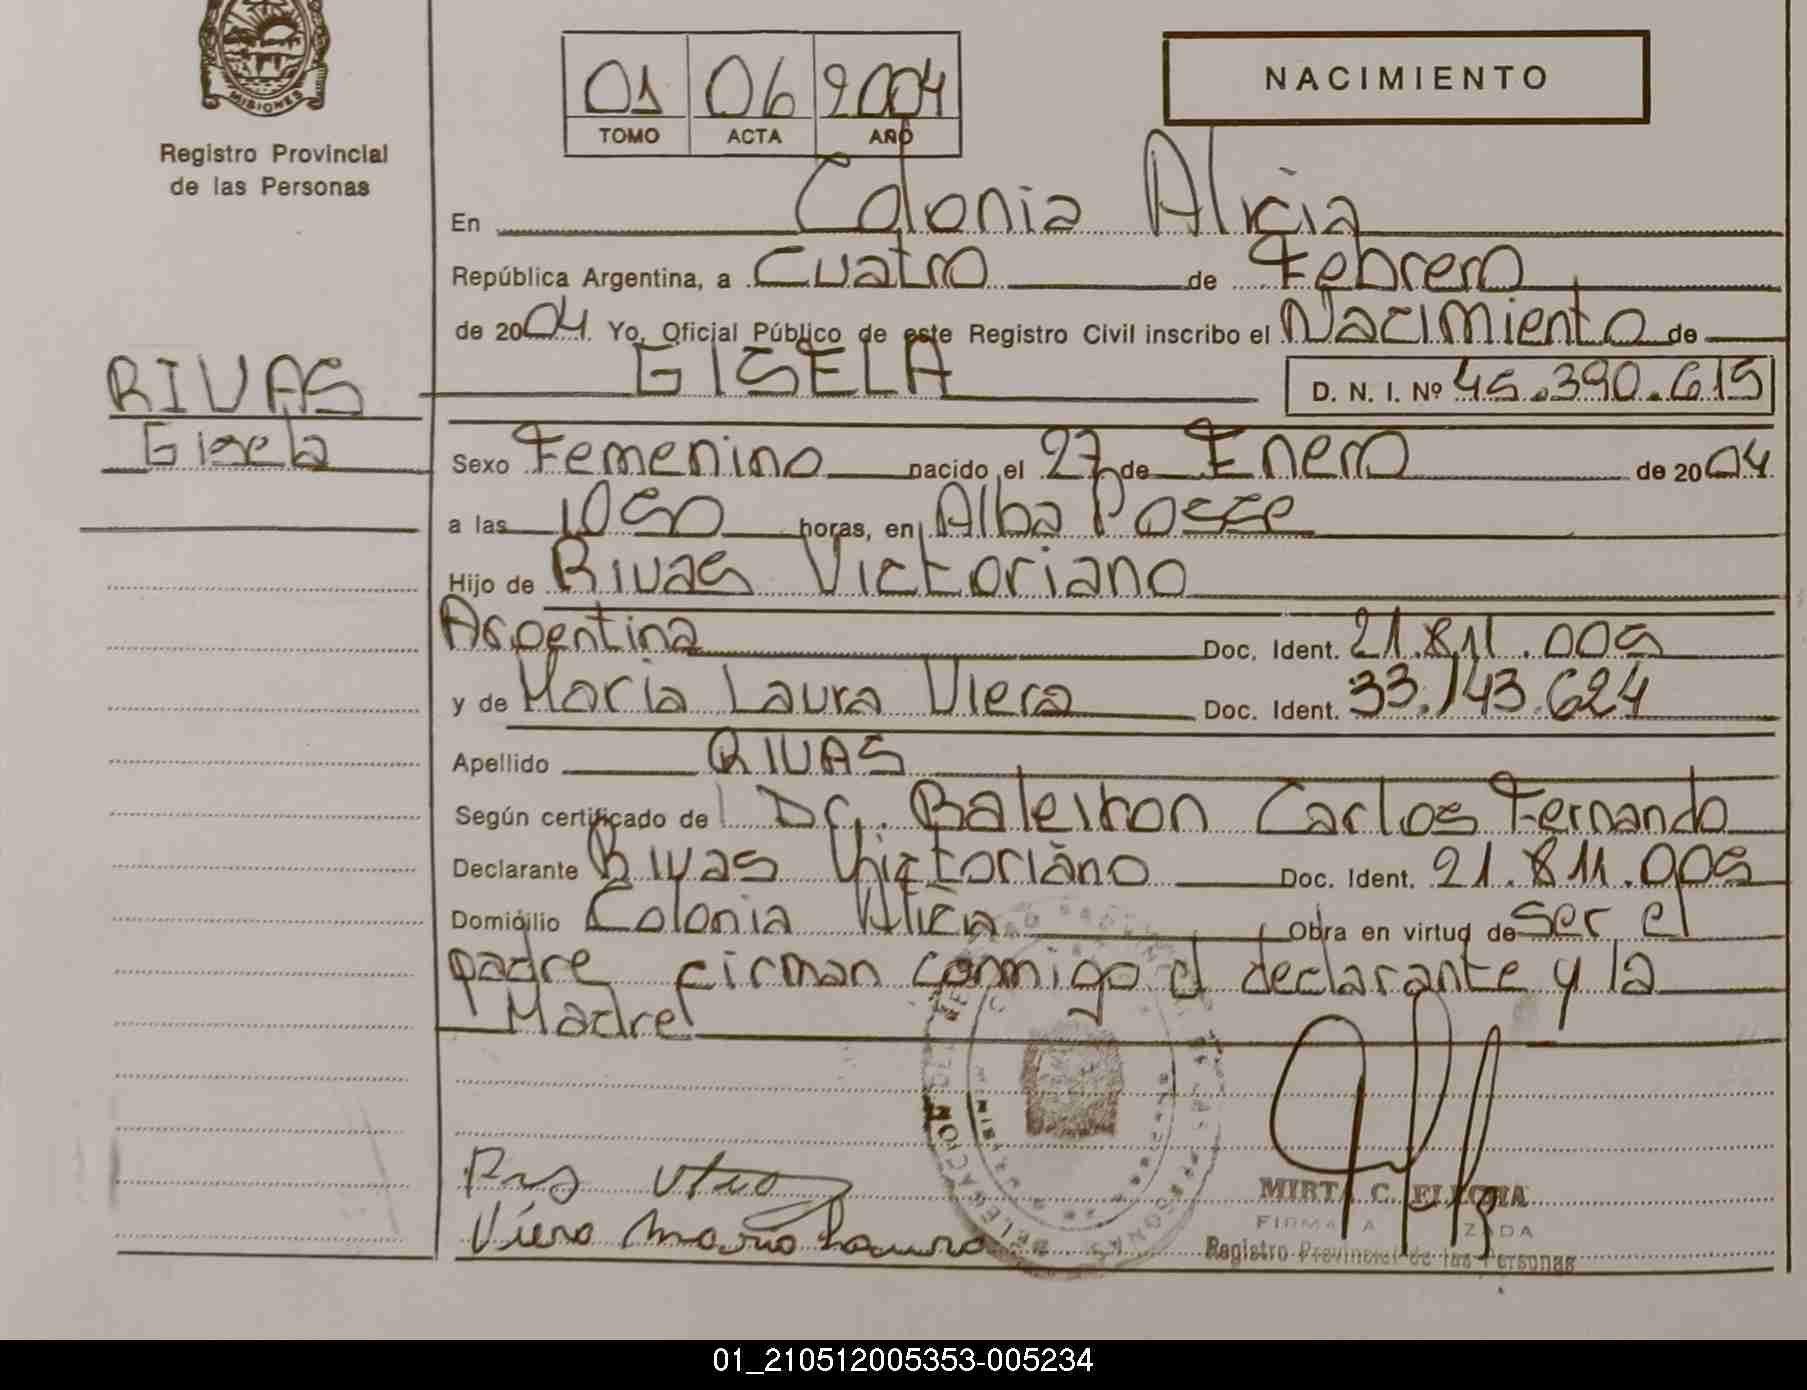 MISIONES
Registro Provincial
de las Personas
RIVAS
Gisela
01 06 2004
TOMO ACTA AÑO
NACIMIENTO
En Colonia Alicia
República Argentina, a Cuatro de Febrero
de 2004. Yo, Oficial Público de este Registro Civil inscribo el Nacimiento de
GISELA D. N. I. Nº 45.390.615
Sexo Femenino nacido el 27 de Enero de 2004
a las 1050 horas, en Alba Posse
Hijo de Rivas Victoriano
Argentina Doc. Ident. 21.811.005
y de Maria Laura Viera Doc. Ident. 33.143.624
Apellido RIVAS
Según certificado de Dr. Carlos Fernando
Declarante Rivas Victoriano Doc. Ident. 21.811.005
Domicilio Colonia Alicia Obra en virtud de ser el
padre firman conmigo el declarante y la
Madre
Viera Maria Laura
MIRTA C.
FIRMA
Registro Provincial de las Personas
01_210512005353-005234